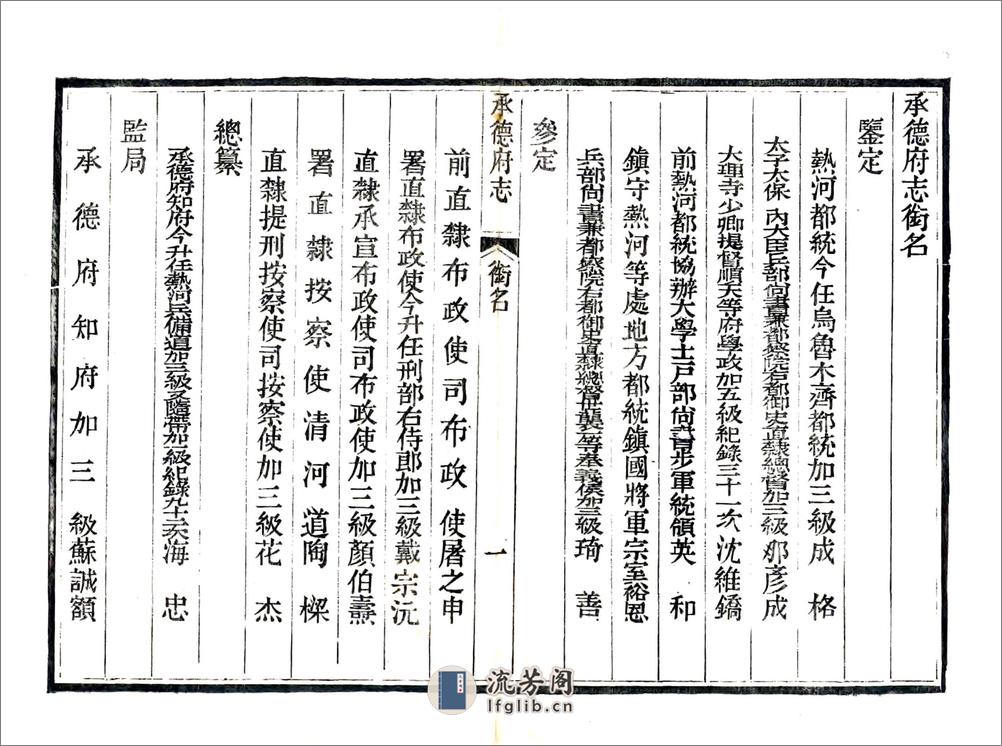 承德府志銜名
鑒定
熱河都統今任烏魯木齊都統加三級成格
太子太保內大臣兵部尚書兼都察院右都御史直隸總督加三級那彥成
大理寺少卿提督順天等府學政加五級紀錄三十一次沈維鐈
前熱河都統協辦大學士戶部尚書步軍統領英和
鎮守熱河等處地方都統鎮國將軍宗室裕恩
兵部尚書兼都察院右都御史直隸總督世襲一等奉義侯加三級琦善
參定
承德府志
銜名
一
前直隸布政使司布政使屠之申
署直隸布政使今升任刑部右侍郎加三級戴宗沅
直隸承宣布政使司布政使加三級顏伯燾
署直隸按察使清河道陶樑
直隸提刑按察使司按察使加三級花杰
總纂
承德府知府今升任熱河兵備道加三級又隨帶加一級紀錄九十二次海忠
監局
承德府知府加三級蘇誠額
流芳阁
lfglib.cn